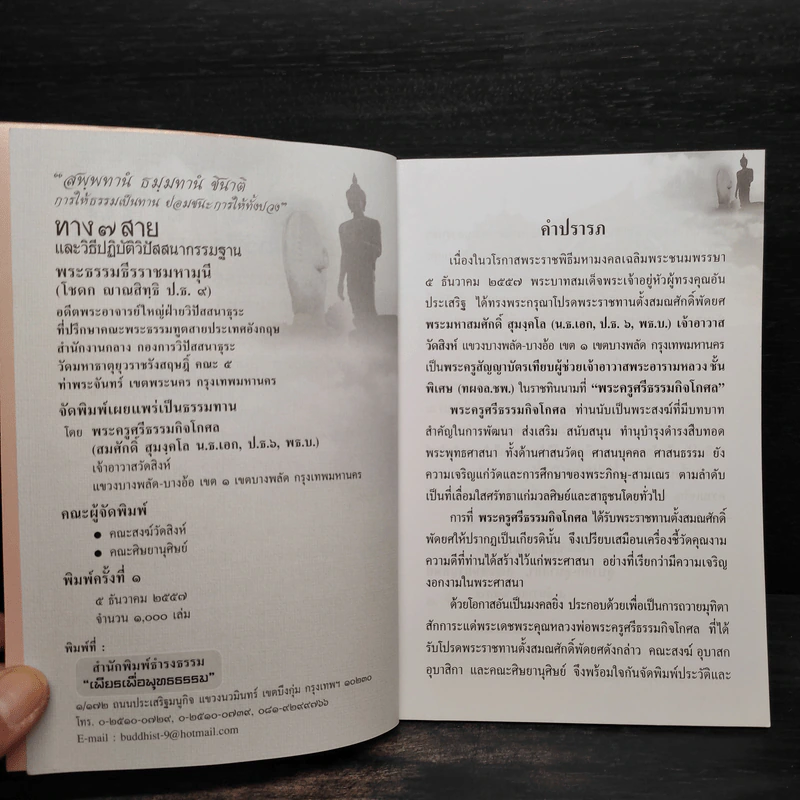 "สพฺพทานํ ธมฺมทานํ ชินาติ
การให้ธรรมเป็นทาน ย่อมชนะการให้ทั้งปวง"
ทาง ๗ สาย
และวิธีปฏิบัติวิปัสสนากรรมฐาน
พระธรรมธีรราชมหามุนี
(โชดก ญาณสิทฺธิ ป.ธ. ๙)
อดีตพระอาจารย์ใหญ่ฝ่ายวิปัสสนาธุระ
ที่ปรึกษาคณะพระธรรมทูตสายประเทศอังกฤษ
สำนักงานกลาง กองการวิปัสสนาธุระ
วัดมหาธาตุยุวราชรังสฤษฎิ์ คณะ ๕
ท่าพระจันทร์ เขตพระนคร กรุงเทพมหานคร
จัดพิมพ์เผยแพร่เป็นธรรมทาน
โดย พระครูศรีธรรมกิจโกศล
(สมศักดิ์ สุมงฺคโล น.ธ.เอก, ป.ธ.๖, พธ.บ.)
เจ้าอาวาสวัดสิงห์
แขวงบางพลัด-บางอ้อ เขต ๑ เขตบางพลัด กรุงเทพมหานคร
คณะผู้จัดพิมพ์
● คณะสงฆ์วัดสิงห์
● คณะศิษยานุศิษย์
พิมพ์ครั้งที่ ๑
๕ ธันวาคม ๒๕๕๗
จำนวน ๑,๐๐๐ เล่ม
พิมพ์ที่ :
สำนักพิมพ์ธำรงธรรม
"เพียรเพื่อพุทธธรรม"
๑/๑๗๒ ถนนประเสริฐมนูกิจ แขวงนวมินทร์ เขตบึงกุ่ม กรุงเทพฯ ๑๐๒๓๐
โทร. ๐-๒๕๑๐-๐๗๒๙, ๐-๒๕๑๐-๐๗๓๙, ๐๘๑-๙๒๙๙๗๖๖
E-mail : buddhist-9@hotmail.com
คำปรารภ
เนื่องในวโรกาสพระราชพิธีมหามงคลเฉลิมพระชนมพรรษา
๕ ธันวาคม ๒๕๕๗ พระบาทสมเด็จพระเจ้าอยู่หัวผู้ทรงคุณอัน
ประเสริฐ ได้ทรงพระกรุณาโปรดพระราชทานตั้งสมณศักดิ์พัดยศ
พระมหาสมศักดิ์ สุมงฺคโล (น.ธ.เอก, ป.ธ. ๖, พธ.บ.) เจ้าอาวาส
วัดสิงห์ แขวงบางพลัด-บางอ้อ เขต ๑ เขตบางพลัด กรุงเทพมหานคร
เป็นพระครูสัญญาบัตรเทียบผู้ช่วยเจ้าอาวาสพระอารามหลวง ชั้น
พิเศษ (ทผจล.ชพ.) ในราชทินนามที่ "พระครูศรีธรรมกิจโกศล"
พระครูศรีธรรมกิจโกศล ท่านนับเป็นพระสงฆ์ที่มีบทบาท
สำคัญในการพัฒนา ส่งเสริม สนับสนุน ทำนุบำรุงดำรงสืบทอด
พระพุทธศาสนา ทั้งด้านศาสนวัตถุ ศาสนบุคคล ศาสนธรรม ยัง
ความเจริญแก่วัดและการศึกษาของพระภิกษุ-สามเณร ตามลำดับ
เป็นที่เลื่อมใสศรัทธาแก่มวลศิษย์และสาธุชนโดยทั่วไป
การที่ พระครูศรีธรรมกิจโกศล ได้รับพระราชทานตั้งสมณศักดิ์
พัดยศให้ปรากฏเป็นเกียรตินั้น จึงเปรียบเสมือนเครื่องชี้วัดคุณงาม
ความดีที่ท่านได้สร้างไว้แก่พระศาสนา อย่างที่เรียกว่ามีความเจริญ
งอกงามในพระศาสนา
ด้วยโอกาสอันเป็นมงคลยิ่ง ประกอบด้วยเพื่อเป็นการถวายมุทิตา
สักการะแด่พระเดชพระคุณหลวงพ่อพระครูศรีธรรมกิจโกศล ที่ได้
รับโปรดพระราชทานตั้งสมณศักดิ์พัดยศดังกล่าว คณะสงฆ์ อุบาสก
อุบาสิกา และคณะศิษยานุศิษย์ จึงพร้อมใจกันจัดพิมพ์ประวัติและ